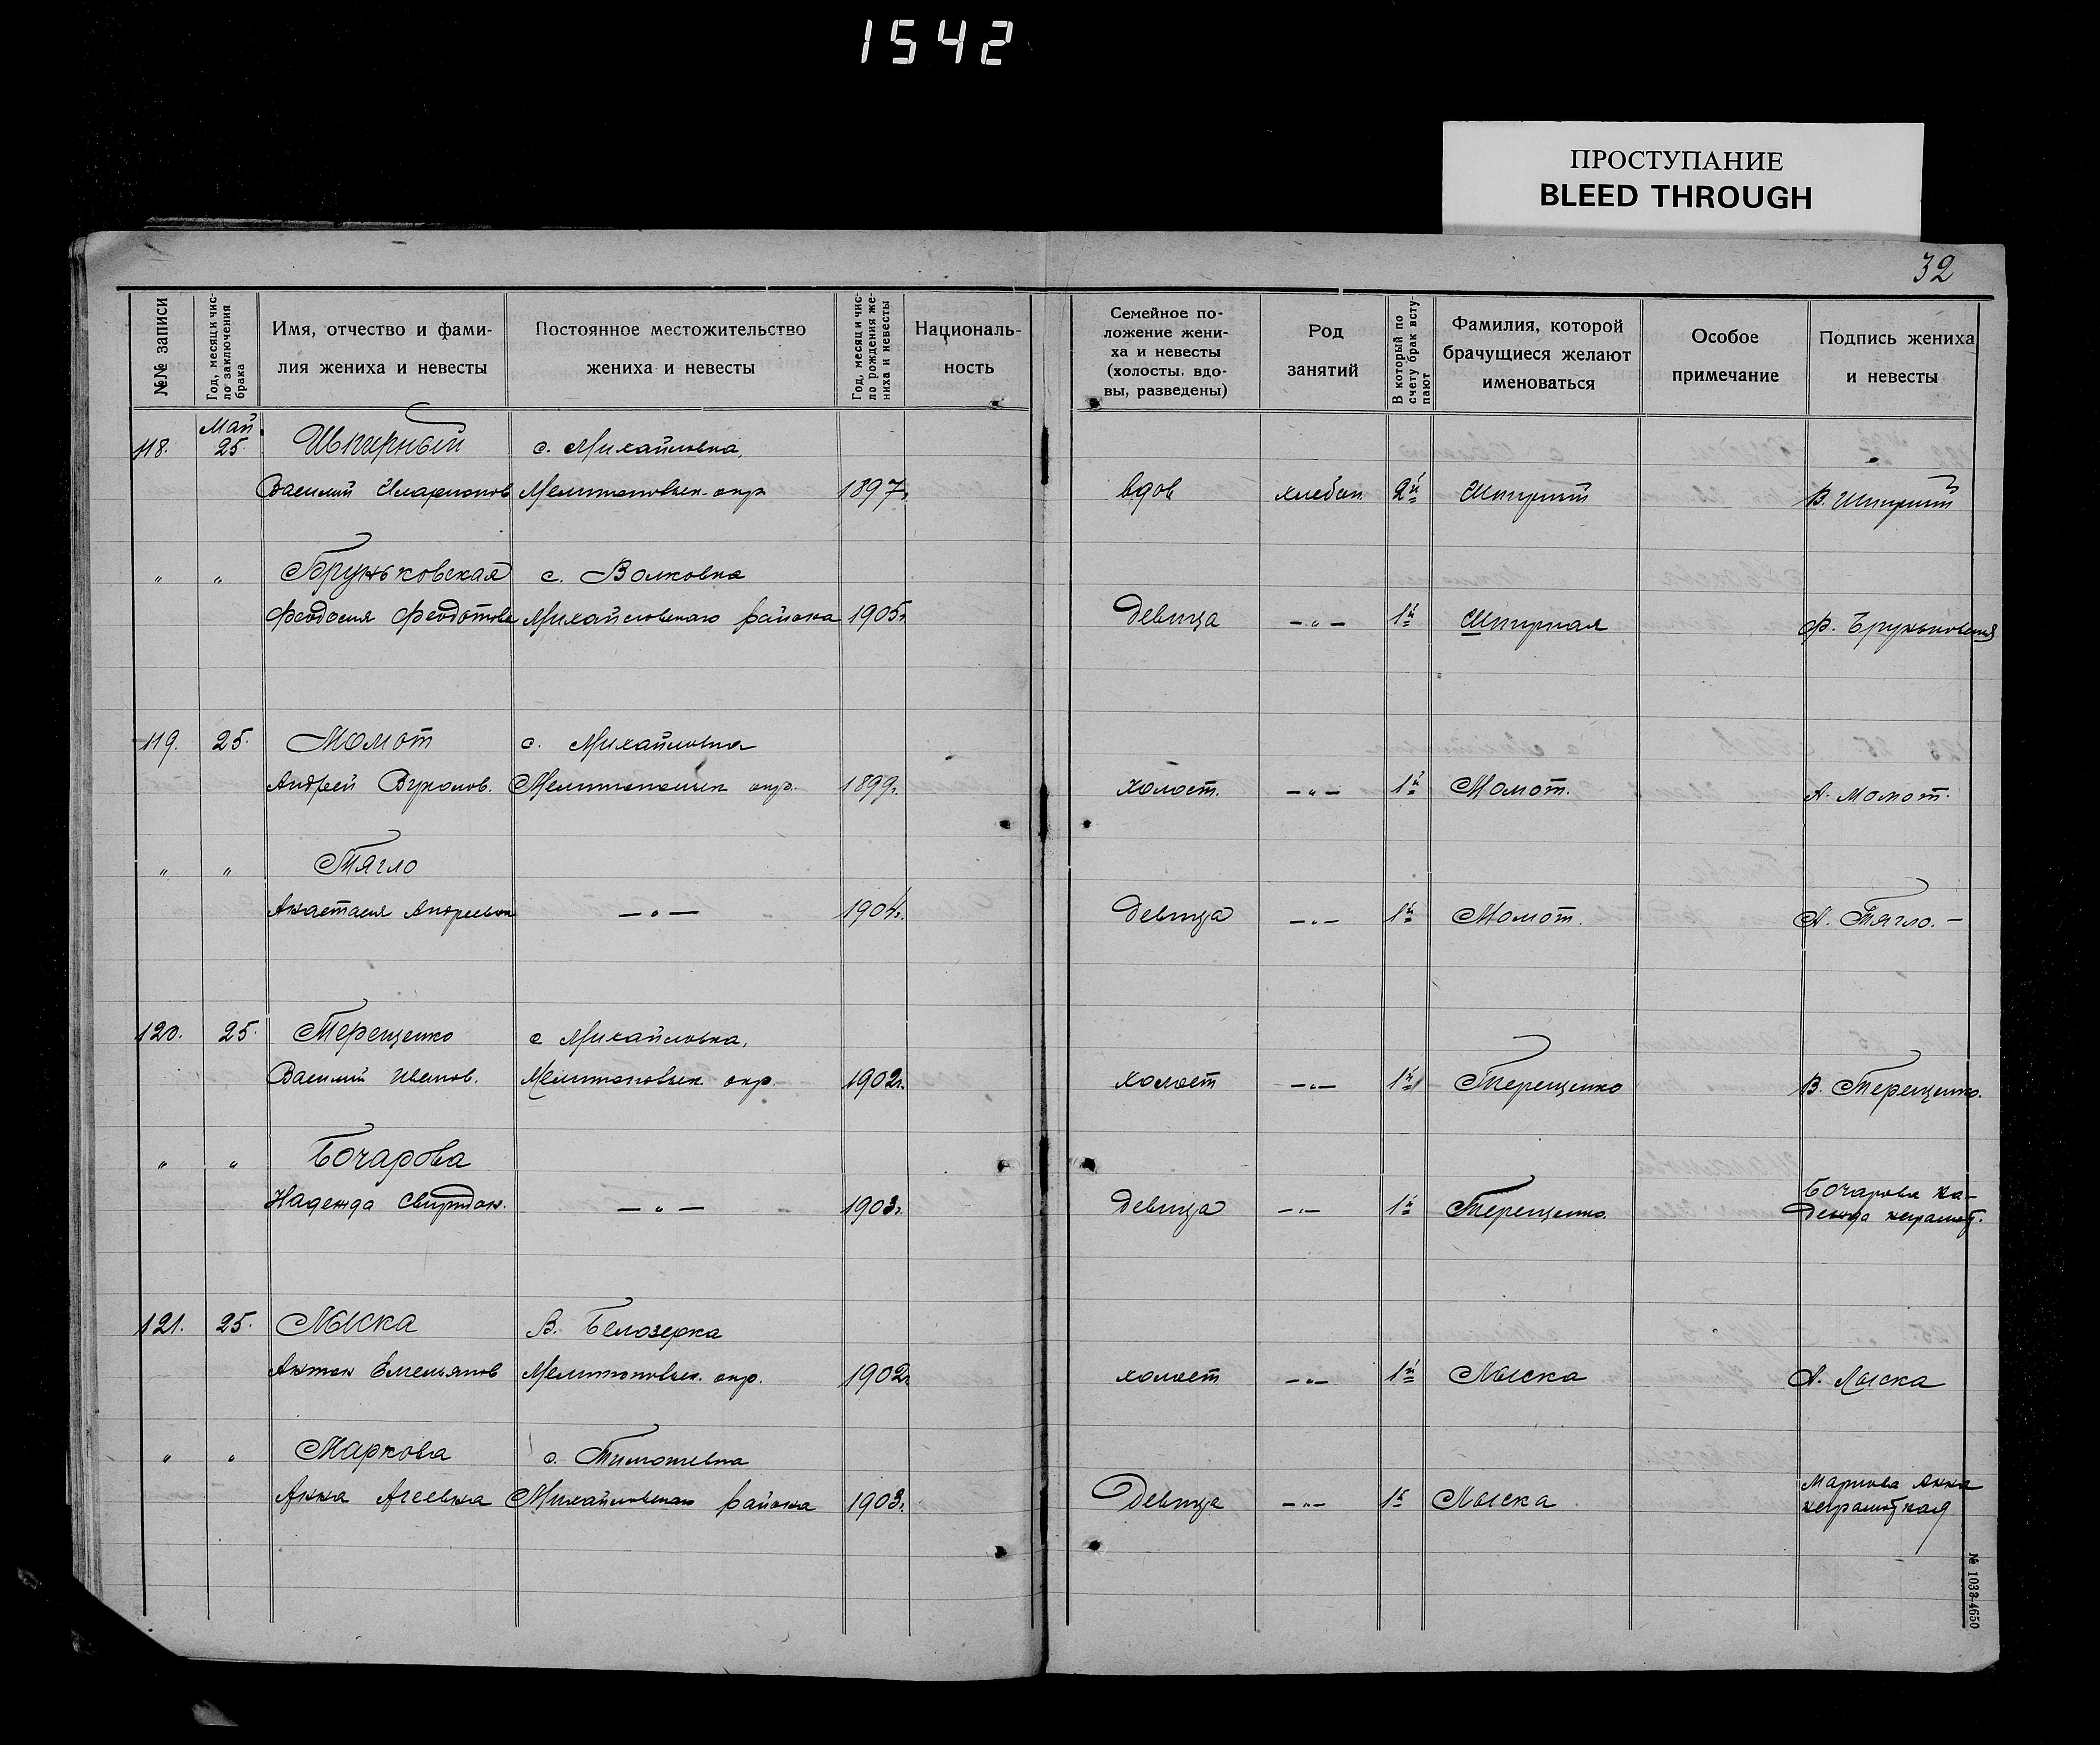 1542
ПРОСТУПАНИЕ
BLEED THROUGH
32
№№ записи
Год, месяц и чис-
ло заключения
брака
Имя, отчество и фами-
лия жениха и невесты
Постоянное местожительство
жениха и невесты
Год, месяц и чис-
ло рождения же-
ниха и невесты
Националь-
ность
Семейное по-
ложение жени-
ха и невесты
(холосты, вдо-
вы, разведены)
Род
занятий
В который по
счету брак всту-
пают
Фамилия, которой
брачущиеся желают
именоваться
Особое
примечание
Подпись жениха
и невесты
Май
118. 25. с. Михайловка,
Василий Иларионов Мелитопольск. окр. 1897г. вдов хлебоп. 2й
" " Бруньковская с. Волковка
Феодосия Феодотовна Михайловскаго района 1905г. девица —„— 1й Шпирная Ф. Бруньковская
119. 25. Момот с. Михайловка
Андрей Вуколов. Мелитопольск окр. 1899г. холост. —„— 1й Момот. А. Момот.
" " Тягло
Анастасия Андреевна —„— 1904г. девица —„— 1й Момот. А. Тягло.—
120. 25. Терещенко с Михайловка,
Василий Иванов. Мелитопольск. окр. 1902г. холост —„— 1й Терещенко В. Терещенко.
" " Бочарова
Надежда —„— 1903г. девица —„— 1й Терещенко. Бочарова На-
дежда неграмот.
121. 25. Лыска В. Белозерка
Антон Емельянов Мелитопольск. окр. 1902г. холост —„— 1й Лыска А. Лыска
" " Маркова с. Тимошевка
Анна Агеевна Михайловскаго района 1903г. Девица —„— 1й Лыска Маркова Анна
неграмотная
№ 1033-4650